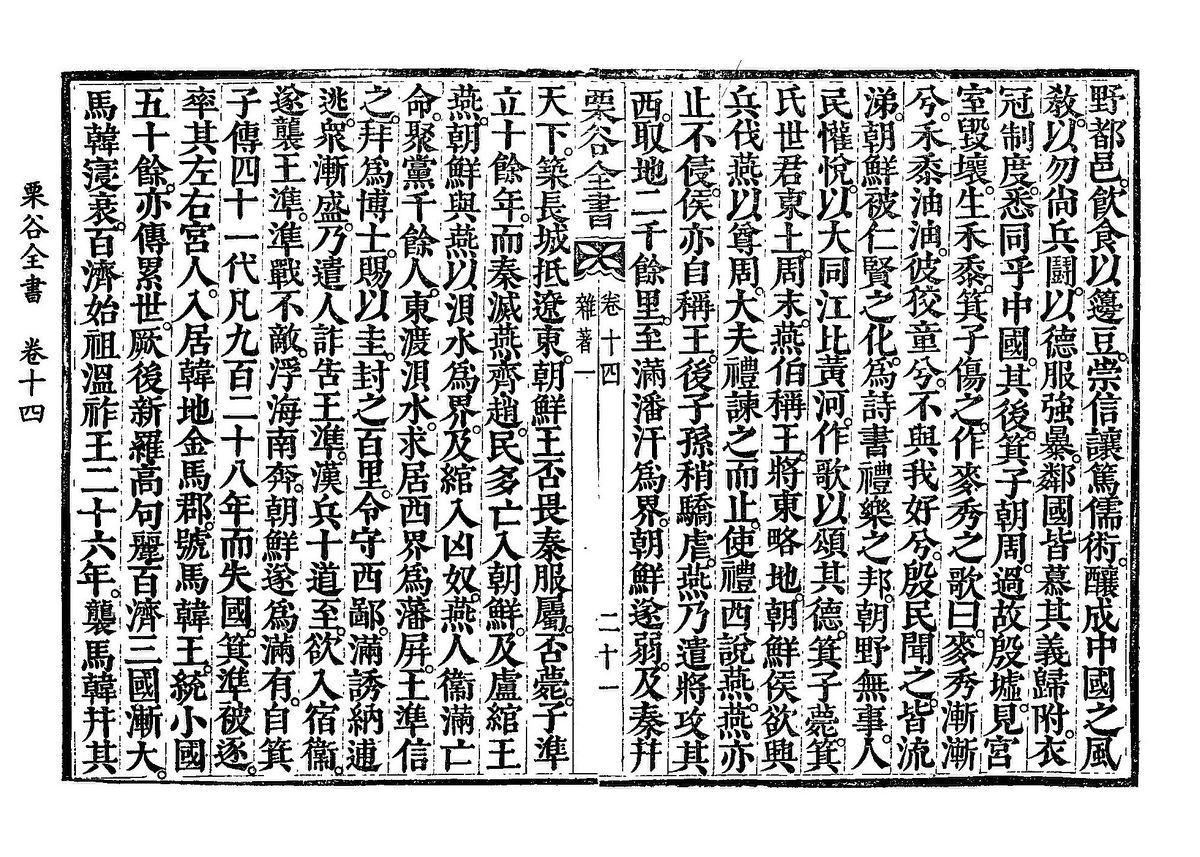 野都邑。飲食以籩豆。崇信讓篤儒術。釀成中國之風
敎。以勿尙兵鬪。以德服強暴。鄰國皆慕其義歸附。衣
冠制度。悉同乎中國。其後。箕子朝周。過故殷墟。見宮
室毀壞。生禾黍。箕子傷之。作麥秀之歌曰。麥秀漸漸
兮。禾黍油油。彼狡童兮。不與我好兮。殷民聞之。皆流
涕。朝鮮被仁賢之化。爲詩書禮樂之邦。朝野無事。人
民懽悅。以大同江比黃河。作歌以頌其德。箕子薨。箕
氏世君東土。周末。燕伯稱王。將東略地。朝鮮侯欲興
兵伐燕以尊周。大夫禮諫之而止。使禮西說燕。燕亦
止不侵。侯亦自稱王。後子孫稍驕虐。燕乃遣將攻其
西。取地二千餘里。至滿潘汗爲界。朝鮮遂弱。及秦幷
栗谷全書 卷十四 雜著一 二十一
天下。築長城抵遼東。朝鮮王否畏秦服屬。否薨。子準
立十餘年。而秦滅燕齊趙。民多亡入朝鮮。及盧綰王
燕。朝鮮與燕以浿水爲界。及綰入凶奴。燕人衞滿亡
命。聚黨千餘人。東渡浿水。求居西界爲藩屛。王準信
之。拜爲博士。賜以圭。封之百里。令守西鄙。滿誘納逋
逃。衆漸盛。乃遣人詐告王準。漢兵十道至。欲入宿衞。
遂襲王準。準戰不敵。浮海南奔。朝鮮遂爲滿有。自箕
子傳四十一代凡九百二十八年而失國。箕準被逐。
率其左右宮人。入居韓地金馬郡。號馬韓王。統小國
五十餘。亦傳累世。厥後新羅高句麗百濟三國漸大。
馬韓寖衰。百濟始祖溫祚王二十六年。襲馬韓幷其
栗谷全書 卷十四